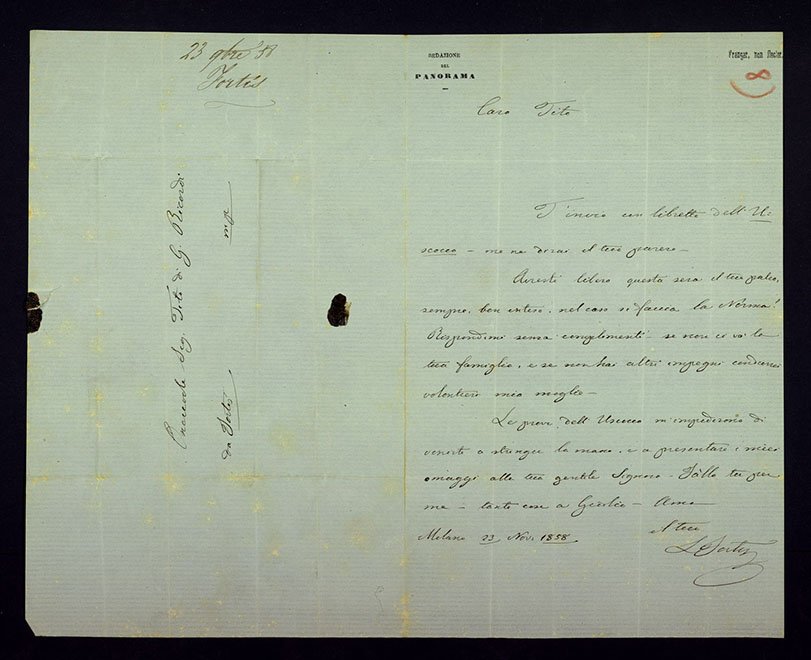 23 9bre 58
Fortis
Onorevole Sig. Tito di G. Ricordi
mp
da Fortis
REDAZIONE
DEL
PANORAMA
8
Caro Tito
T'invio un libretto dell'Us
cocco - me ne dirai il tuo parere -
Avresti libero questa sera il tuo palco,
sempre, ben inteso, nel caso si faccia la Norma?
Rispondimi senza complimenti - se non ci va la
tua famiglia, e se non hai altri impegni condurrei
volentieri mia moglie -
Le prove dell'Uscocco m'impediscono di
venirti a stringer la mano, e a presentare i miei
omaggi alla tua gentile Signora - Fallo tu per
me - tante cose a Giulio - Ama
il tuo
L Fortis
Milano 23 Nov. 1858